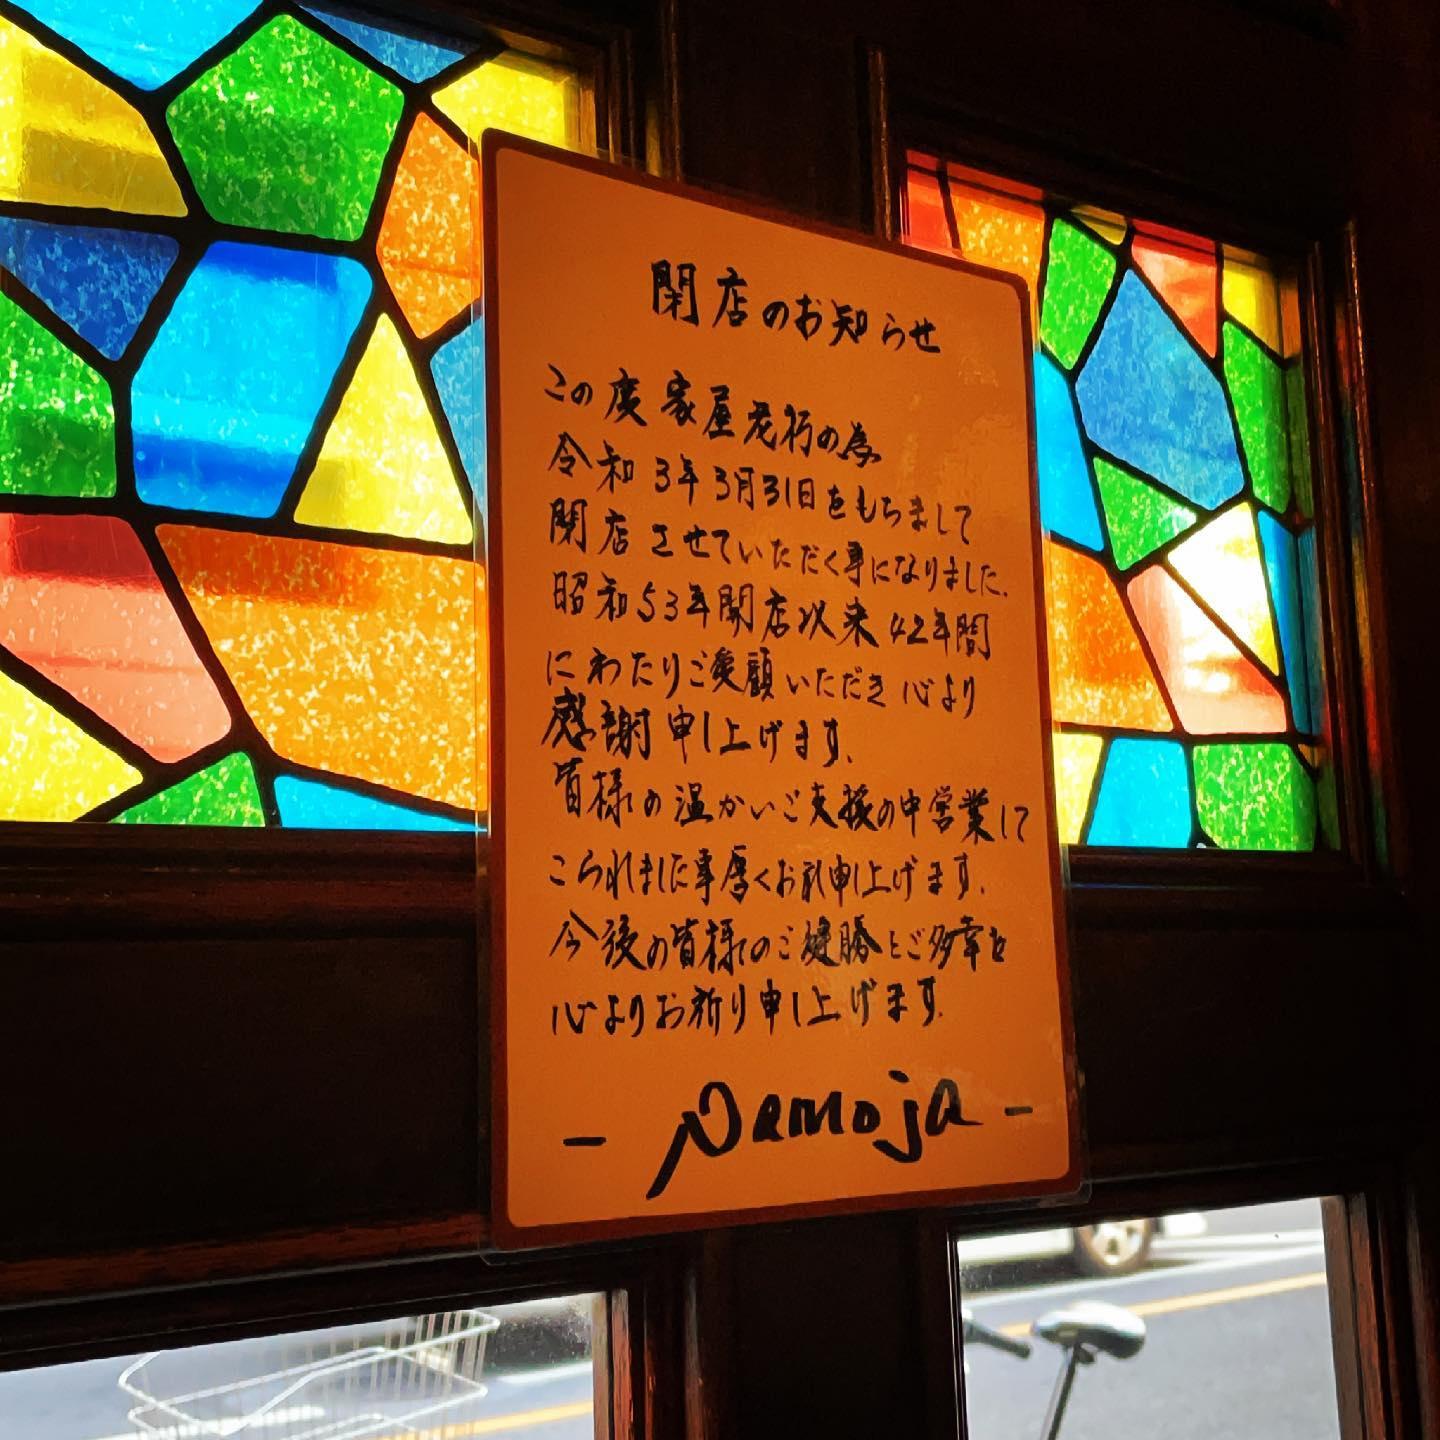 閉店のお知らせ
この度家屋老朽の為
令和3年3月31日をもちまして
閉店させていただく事になりました.
昭和53年開店以来42年間
にわたりご愛顧いただき心より
感謝申し上げます.
皆様の温かいご支援の中営業して
こられました事厚くお礼申し上げます.
今後の皆様のご健勝とご多幸を
心よりお祈り申し上げます.